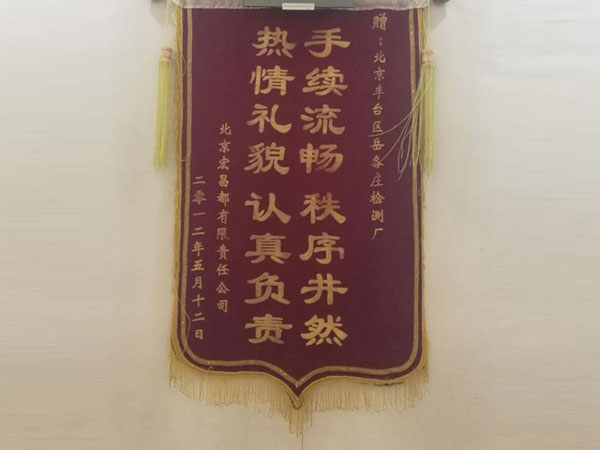 赠：北京丰台区岳各庄检测厂
手续流畅 秩序井然
热情礼貌 认真负责
北京宏昌都有限责任公司
二零一二年五月十二日